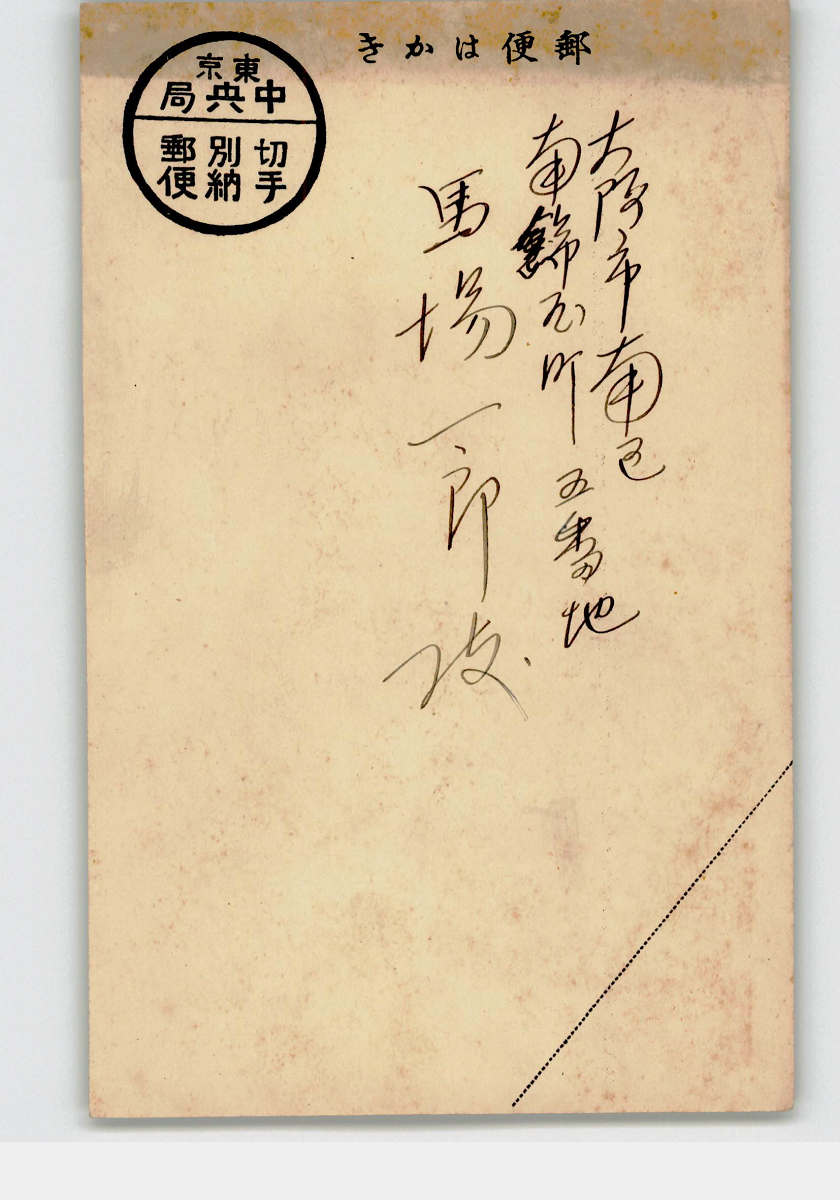 郵便はかき
東京
中央局
切手
別納
郵便
大阪市南区
南綿屋町五番地
馬場一郎様